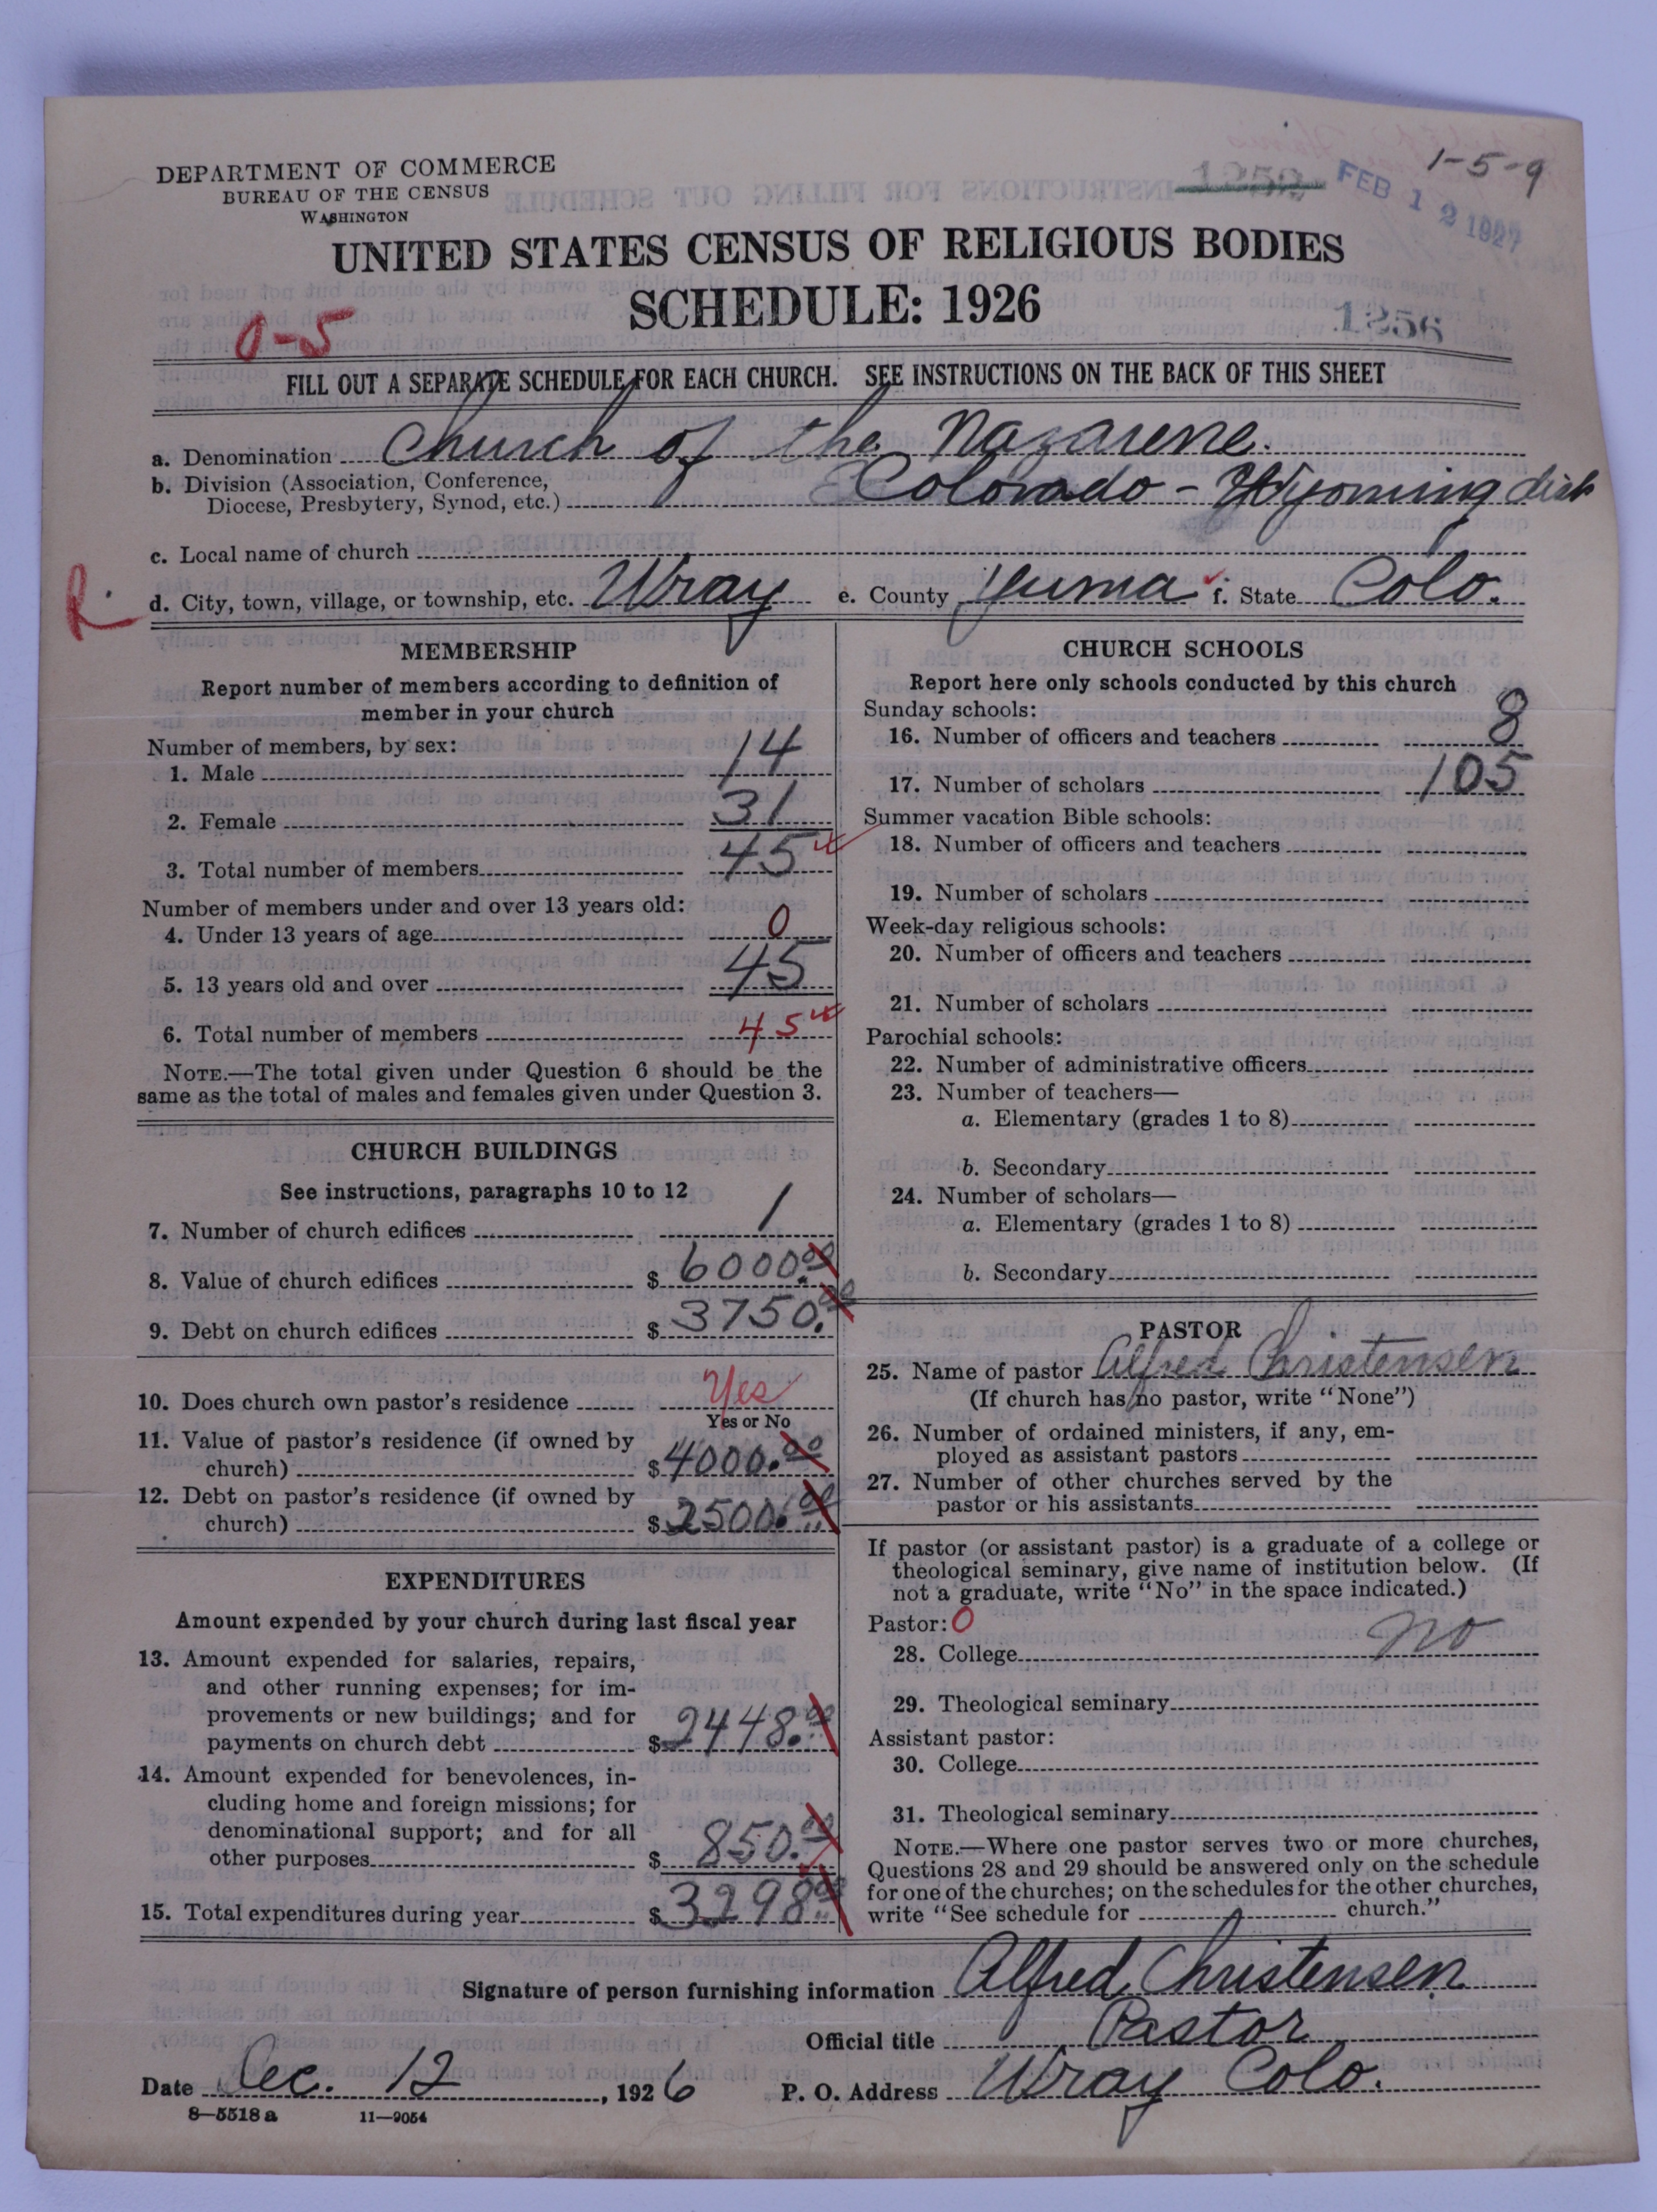 DEPARTMENT OF COMMERCE
BUREAU OF THE CENSUS
WASHINGTON
1252
FEB 12 1927
1-5-9
UNITED STATES CENSUS OF RELIGIOUS BODIES
SCHEDULE: 1926
0-5
1256
FILL OUT A SEPARATE SCHEDULE FOR EACH CHURCH. SEE INSTRUCTIONS ON THE BACK OF THIS SHEET
a. Denomination Church of the Nazarene.
b. Division (Association, Conference,
Diocese, Presbytery, Synod, etc.) Colorado-Wyoming dist
c. Local name of church
R.
d. City, town, village, or township, etc. Wray e. County Yuma f. State Colo.
MEMBERSHIP
Report number of members according to definition of
member in your church
Number of members, by sex:
1. Male 14
2. Female 31
3. Total number of members 45
Number of members under and over 13 years old:
4. Under 13 years of age 0
5. 13 years old and over 45
6. Total number of members 45
NOTE.—The total given under Question 6 should be the
same as the total of males and females given under Question 3.
CHURCH BUILDINGS
See instructions, paragraphs 10 to 12
7. Number of church edifices 1
8. Value of church edifices $ 6000.00
9. Debt on church edifices $ 3750.00
10. Does church own pastor's residence Yes
Yes or No
11. Value of pastor's residence (if owned by
church) $ 4000.00
12. Debt on pastor's residence (if owned by
church) $ 2500.00
EXPENDITURES
Amount expended by your church during last fiscal year
13. Amount expended for salaries, repairs,
and other running expenses; for im-
provements or new buildings; and for
payments on church debt $ 2448.00
14. Amount expended for benevolences, in-
cluding home and foreign missions; for
denominational support; and for all
other purposes $ 850.00
15. Total expenditures during year $ 3298.00
CHURCH SCHOOLS
Report here only schools conducted by this church
Sunday schools:
16. Number of officers and teachers 8
17. Number of scholars 105
Summer vacation Bible schools:
18. Number of officers and teachers
19. Number of scholars
Week-day religious schools:
20. Number of officers and teachers
21. Number of scholars
Parochial schools:
22. Number of administrative officers
23. Number of teachers—
a. Elementary (grades 1 to 8)
b. Secondary
24. Number of scholars—
a. Elementary (grades 1 to 8)
b. Secondary
PASTOR
25. Name of pastor Alfred Christensen
(If church has no pastor, write "None")
26. Number of ordained ministers, if any, em-
ployed as assistant pastors
27. Number of other churches served by the
pastor or his assistants
If pastor (or assistant pastor) is a graduate of a college or
theological seminary, give name of institution below. (If
not a graduate, write "No" in the space indicated.)
Pastor: 0
28. College No
29. Theological seminary
Assistant pastor:
30. College
31. Theological seminary
NOTE.—Where one pastor serves two or more churches,
Questions 28 and 29 should be answered only on the schedule
for one of the churches; on the schedules for the other churches,
write "See schedule for church."
Signature of person furnishing information Alfred Christensen
Official title Pastor
Date Dec. 12, 1926 P. O. Address Wray Colo.
8—5518 a 11—9054